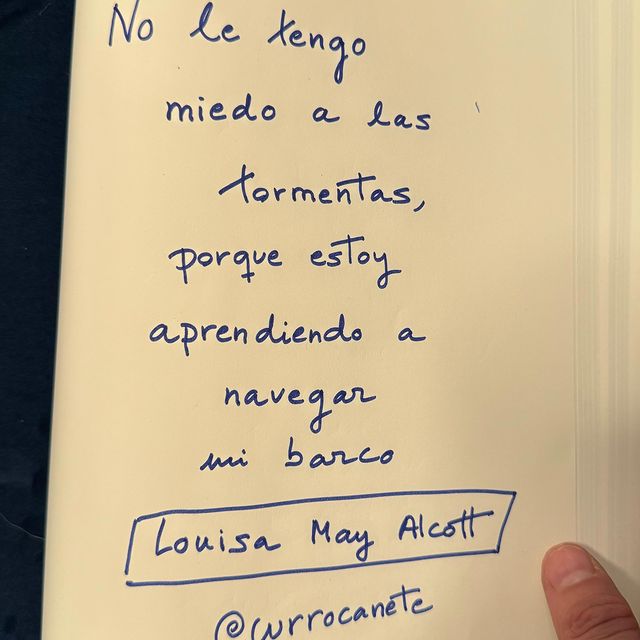 No le tengo
miedo a las
tormentas,
porque estoy
aprendiendo a
navegar
mi barco
Louisa May Alcott
@currocanete